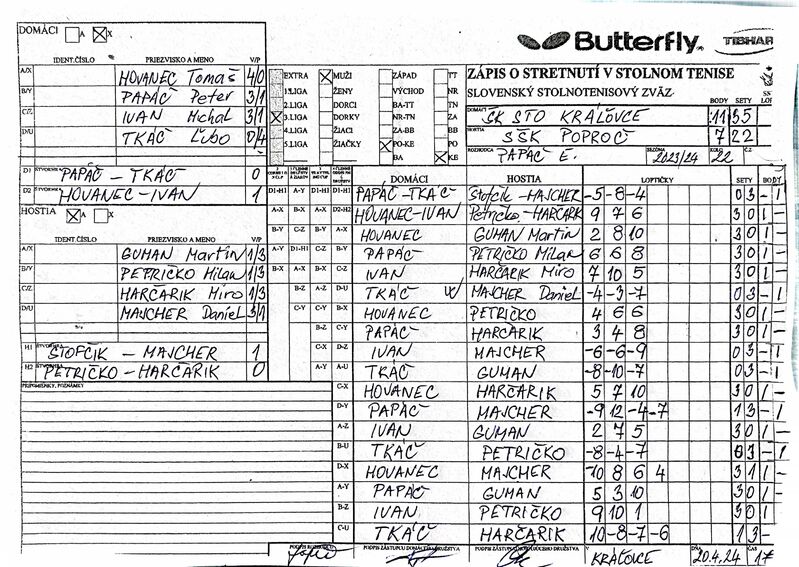 DOMÁCI A X
Butterfly
TIBHAR
IDENT.ČÍSLO PRIEZVISKO A MENO V/P
A/X HOVANEC Tomáš 4/0
B/Y PAPÁČ Peter 3/1
C/Z IVAN Michal 3/1
D/U TKÁČ Ľubo 0/4
D1 ŠTVORHRA PAPÁČ - TKÁČ 0
D2 ŠTVORHRA HOVANEC - IVAN 1
HOSTIA A X
IDENT.ČÍSLO PRIEZVISKO A MENO V/P
A/X GUMAN Martin 1/3
B/Y PETRIČKO Milan 1/3
C/Z HARČARIK Miro 1/3
D/U MAJCHER Daniel 3/1
H1 ŠTVORHRA STOFČIK - MAJCHER 1
H2 PETRIČKO - HARČARIK 0
PRIPOMIENKY, POZNÁMKY
EXTRA MUŽI ZÁPAD TT
1.LIGA ŽENY VÝCHOD NR
2.LIGA DORCI BA-TT TN
3.LIGA DORKY NR-TN ZA
4.LIGA ŽIACI ZA-BB BB
5.LIGA ŽIAČKY PO-KE PO
BA KE
ZÁPIS O STRETNUTÍ V STOLNOM TENISE
SLOVENSKÝ STOLNOTENISOVÝ ZVÄZ
BODY SETY
DOMÁCI ŠK STO KRÁĽOVCE 11 35
HOSTIA SŠK POPROČ 7 22
ROZHODCA PAPÁČ E. SEZÓNA 2023/24 KOLO 22 Č.Z.
DOMÁCI HOSTIA LOPTIČKY SETY BODY
D1-H1 A-Y D1-H1 D1-H1 PAPÁČ - TKÁČ Stofčik - MAJCHER -5 -8 -4 0 3 - 1
A-X B-X A-X D2-H2 HOVANEC - IVAN Petričko - HARČARIK 9 7 6 3 0 1 -
B-Y C-Z B-Y A-X HOVANEC GUMAN Martin 2 8 10 3 0 1 -
A-Y D1-H1 C-Z B-Y PAPÁČ PETRIČKO Milan 6 6 8 3 0 1 -
B-X A-X B-X C-Z IVAN HARČARIK Miro 7 10 5 3 0 1 -
B-Z A-Z D-U TKÁČ MAJCHER Daniel -4 -3 -7 0 3 - 1
C-Y C-Y B-X HOVANEC PETRIČKO 4 6 6 3 0 1 -
B-Z C-Y PAPÁČ HARČARIK 3 4 8 3 0 1 -
C-X D-Z IVAN MAJCHER -6 -6 -9 0 3 - 1
A-Y A-U TKÁČ GUMAN -8 -10 -7 0 3 - 1
C-X HOVANEC HARČARIK 5 7 10 3 0 1 -
D-Y PAPÁČ MAJCHER -9 12 -4 -7 1 3 - 1
A-Z IVAN GUMAN 2 7 5 3 0 1 -
B-U TKÁČ PETRIČKO -8 -4 -7 0 3 - 1
D-X HOVANEC MAJCHER -10 8 6 4 3 1 1 -
A-Y PAPÁČ GUMAN 5 3 10 3 0 1 -
B-Z IVAN PETRIČKO 9 10 1 3 0 1 -
C-U TKÁČ HARČARIK 10 -8 -7 -6 1 3 -
PODPIS ROZHODCU PODPIS ZÁSTUPCU DOMÁCEHO DRUŽSTVA PODPIS ZÁSTUPCU HOSŤUJÚCEHO DRUŽSTVA V KRÁĽOVCE DŇA 20.4.24 ČAS 17